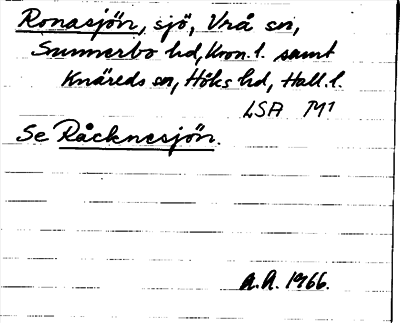 Ronasjön, sjö, Vrå sn,
Sunnerbo hd, Kron. l. samt
Knäreds sn, Höks hd, Hall. l.
LSA M1
Se Råcknesjön.
A.A. 1966.